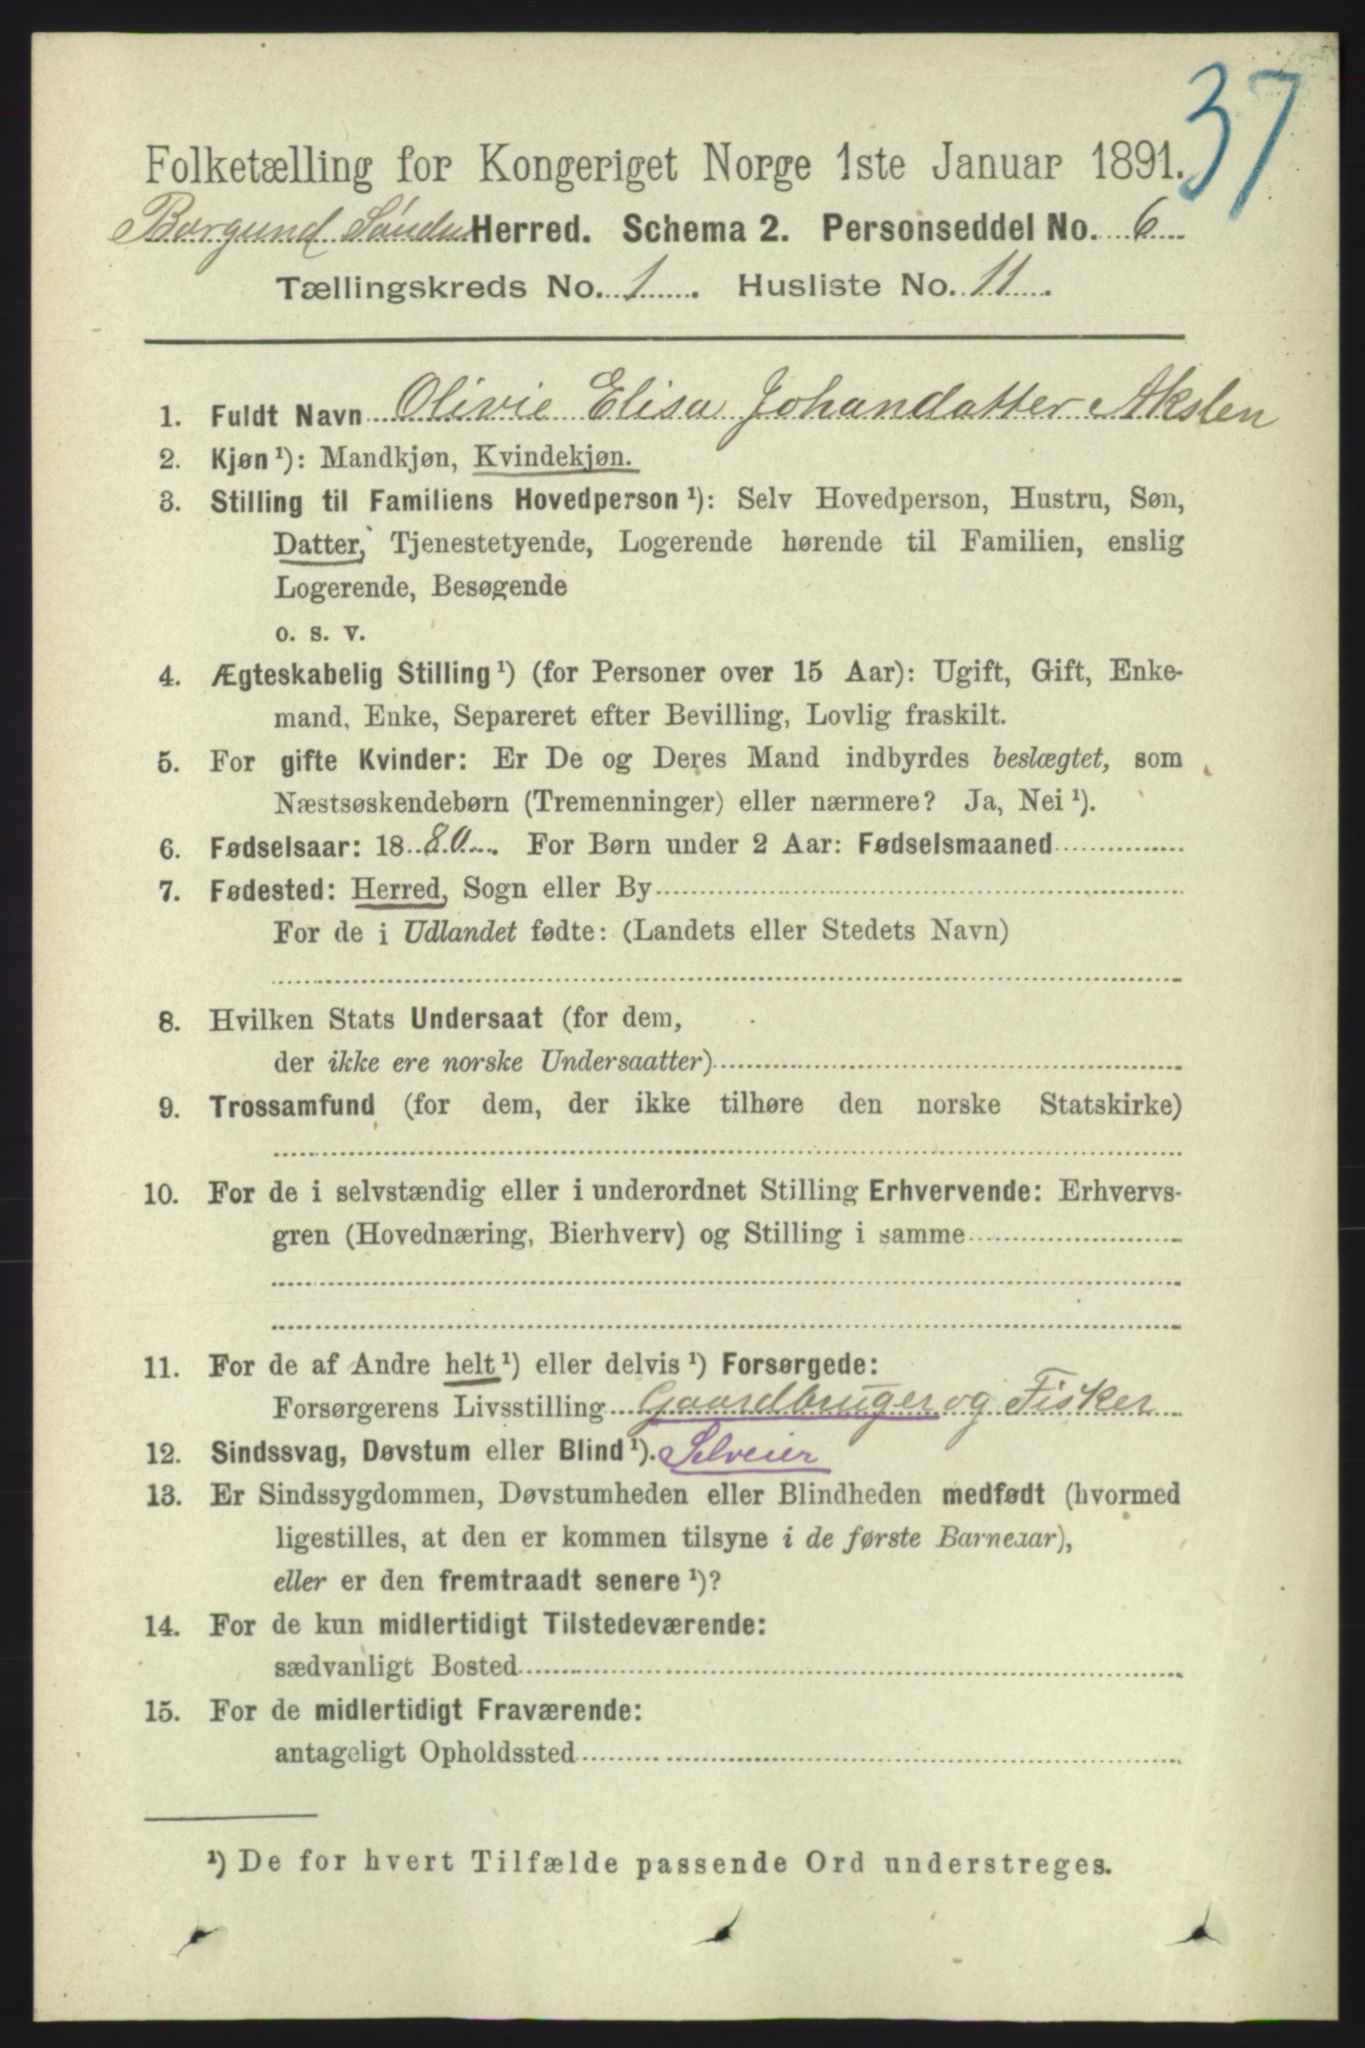 37
Folketælling for Kongeriget Norge 1ste Januar 1891.
Borgund Søndm Herred. Schema 2. Personseddel No. 6
Tællingskreds No. 1. Husliste No. 11.
1. Fuldt Navn Olivie Elisa Johandatter Akslen
2. Kjøn ¹): Mandkjøn, Kvindekjøn.
3. Stilling til Familiens Hovedperson ¹): Selv Hovedperson, Hustru, Søn,
Datter, Tjenestetyende, Logerende hørende til Familien, enslig
Logerende, Besøgende
o. s. v.
4. Ægteskabelig Stilling ¹) (for Personer over 15 Aar): Ugift, Gift, Enke-
mand, Enke, Separeret efter Bevilling, Lovlig fraskilt.
5. For gifte Kvinder: Er De og Deres Mand indbyrdes beslægtet, som
Næstsøskendebørn (Tremenninger) eller nærmere? Ja, Nei ¹).
6. Fødselsaar: 1880. For Børn under 2 Aar: Fødselsmaaned
7. Fødested: Herred, Sogn eller By
For de i Udlandet fødte: (Landets eller Stedets Navn)
8. Hvilken Stats Undersaat (for dem,
der ikke ere norske Undersaatter)
9. Trossamfund (for dem, der ikke tilhøre den norske Statskirke)
10. For de i selvstændig eller i underordnet Stilling Erhvervende: Erhvervs-
gren (Hovednæring, Bierhverv) og Stilling i samme
11. For de af Andre helt ¹) eller delvis ¹) Forsørgede:
Forsørgerens Livsstilling Gaardbruger og Fisker
12. Sindssvag, Døvstum eller Blind ¹). Selveier
13. Er Sindssygdommen, Døvstumheden eller Blindheden medfødt (hvormed
ligestilles, at den er kommen tilsyne i de første Barneaar),
eller er den fremtraadt senere ¹)?
14. For de kun midlertidigt Tilstedeværende:
sædvanligt Bosted
15. For de midlertidigt Fraværende:
antageligt Opholdssted
¹) De for hvert Tilfælde passende Ord understreges.